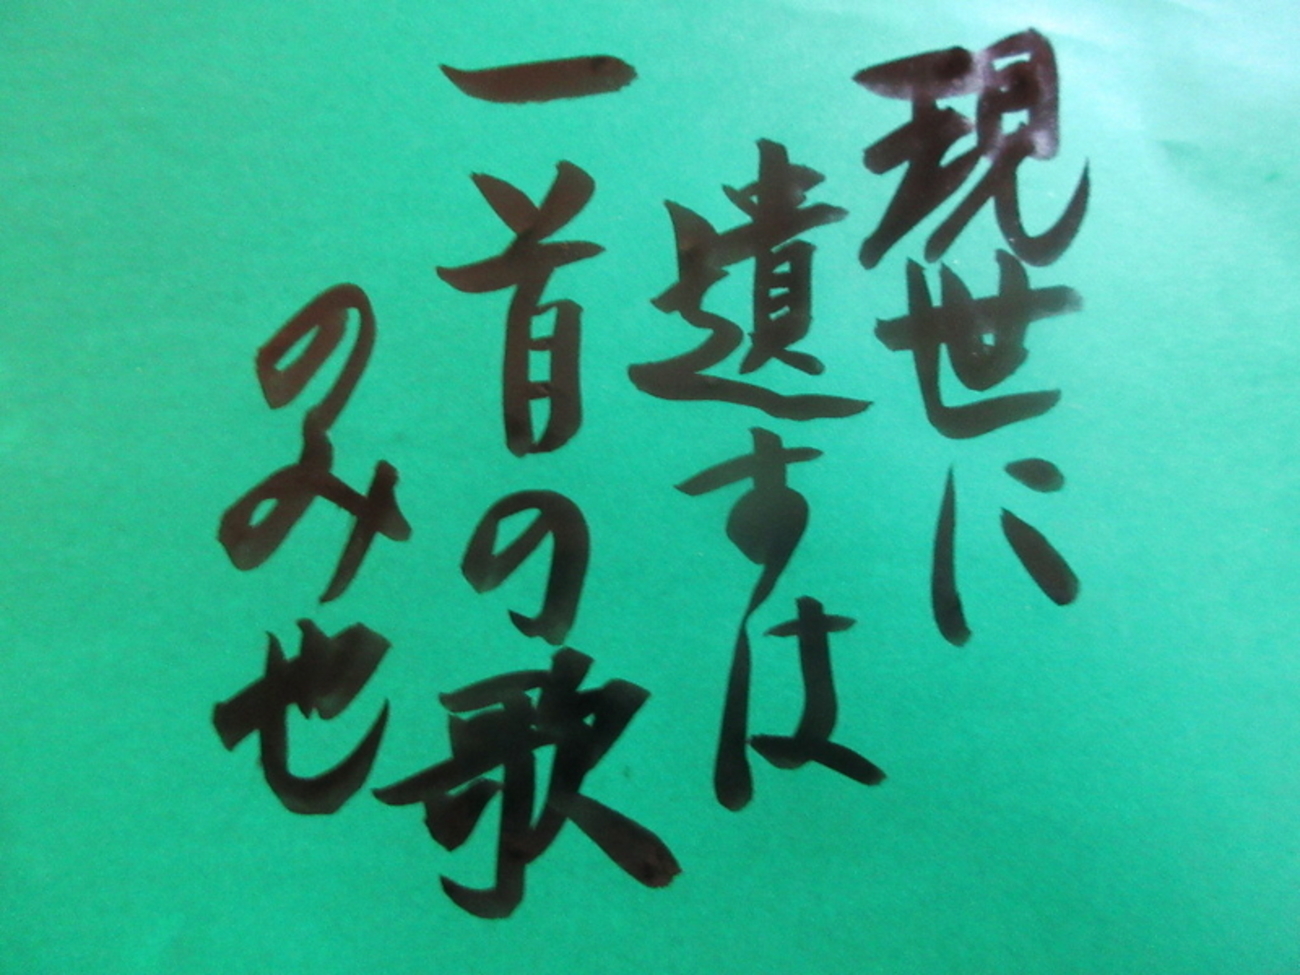 現世に
遺すは
一首の歌
のみ也